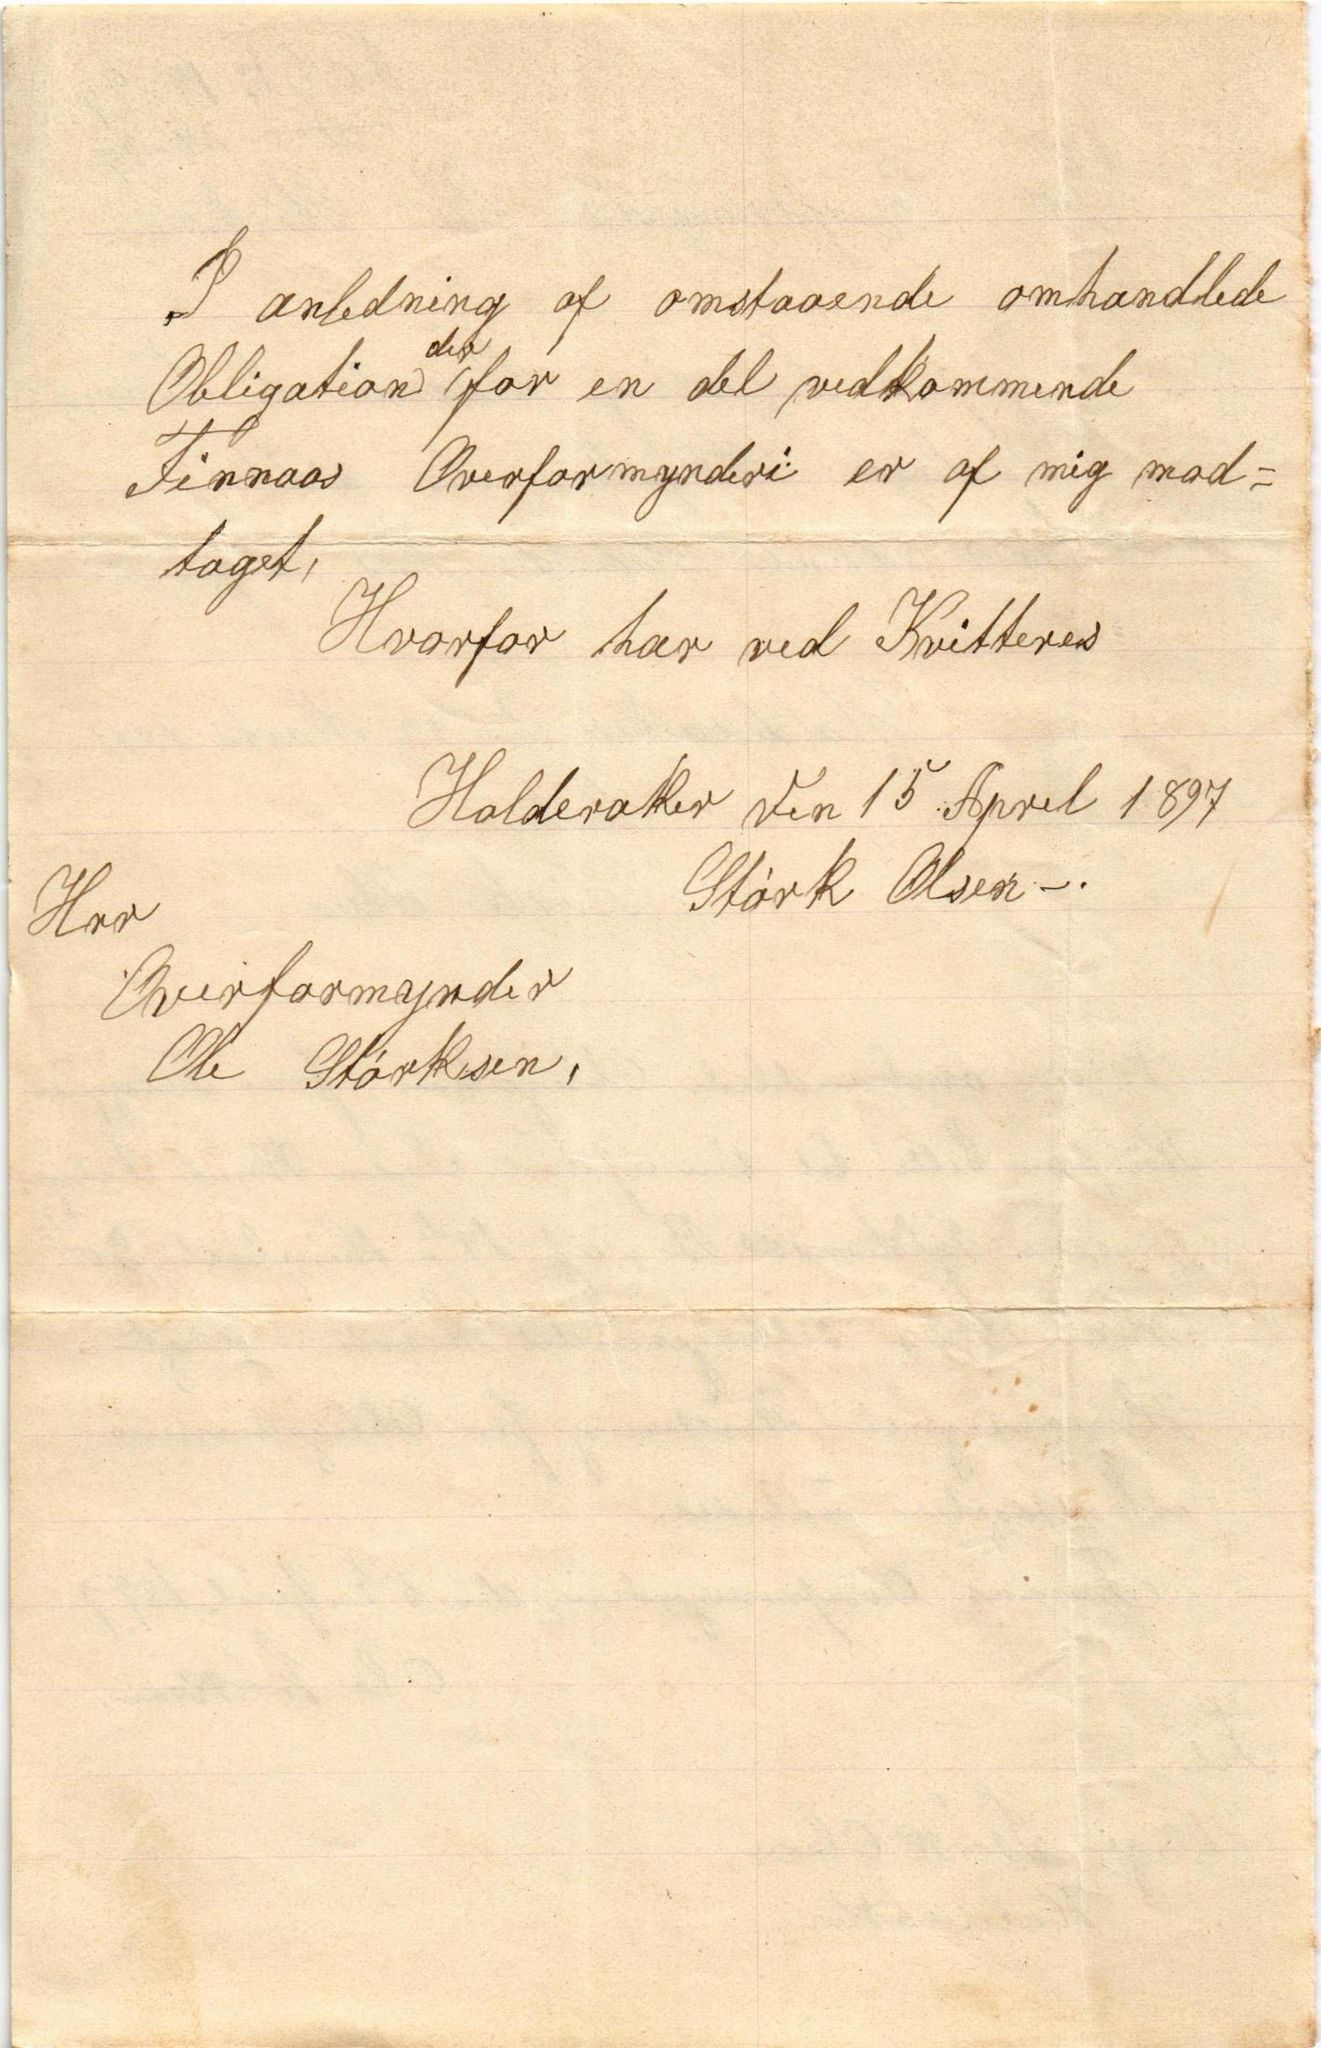 I anledning af omstaaende omhandlede
Obligation der for en del vedkommende
Finnaas Overformynderi er af mig mod=
taget,
Hvorfor her ved Kvitteres
Holderaker den 15 April 1897
Størk Olsen -.
Hrr
Overformynder
Ole Størksen,